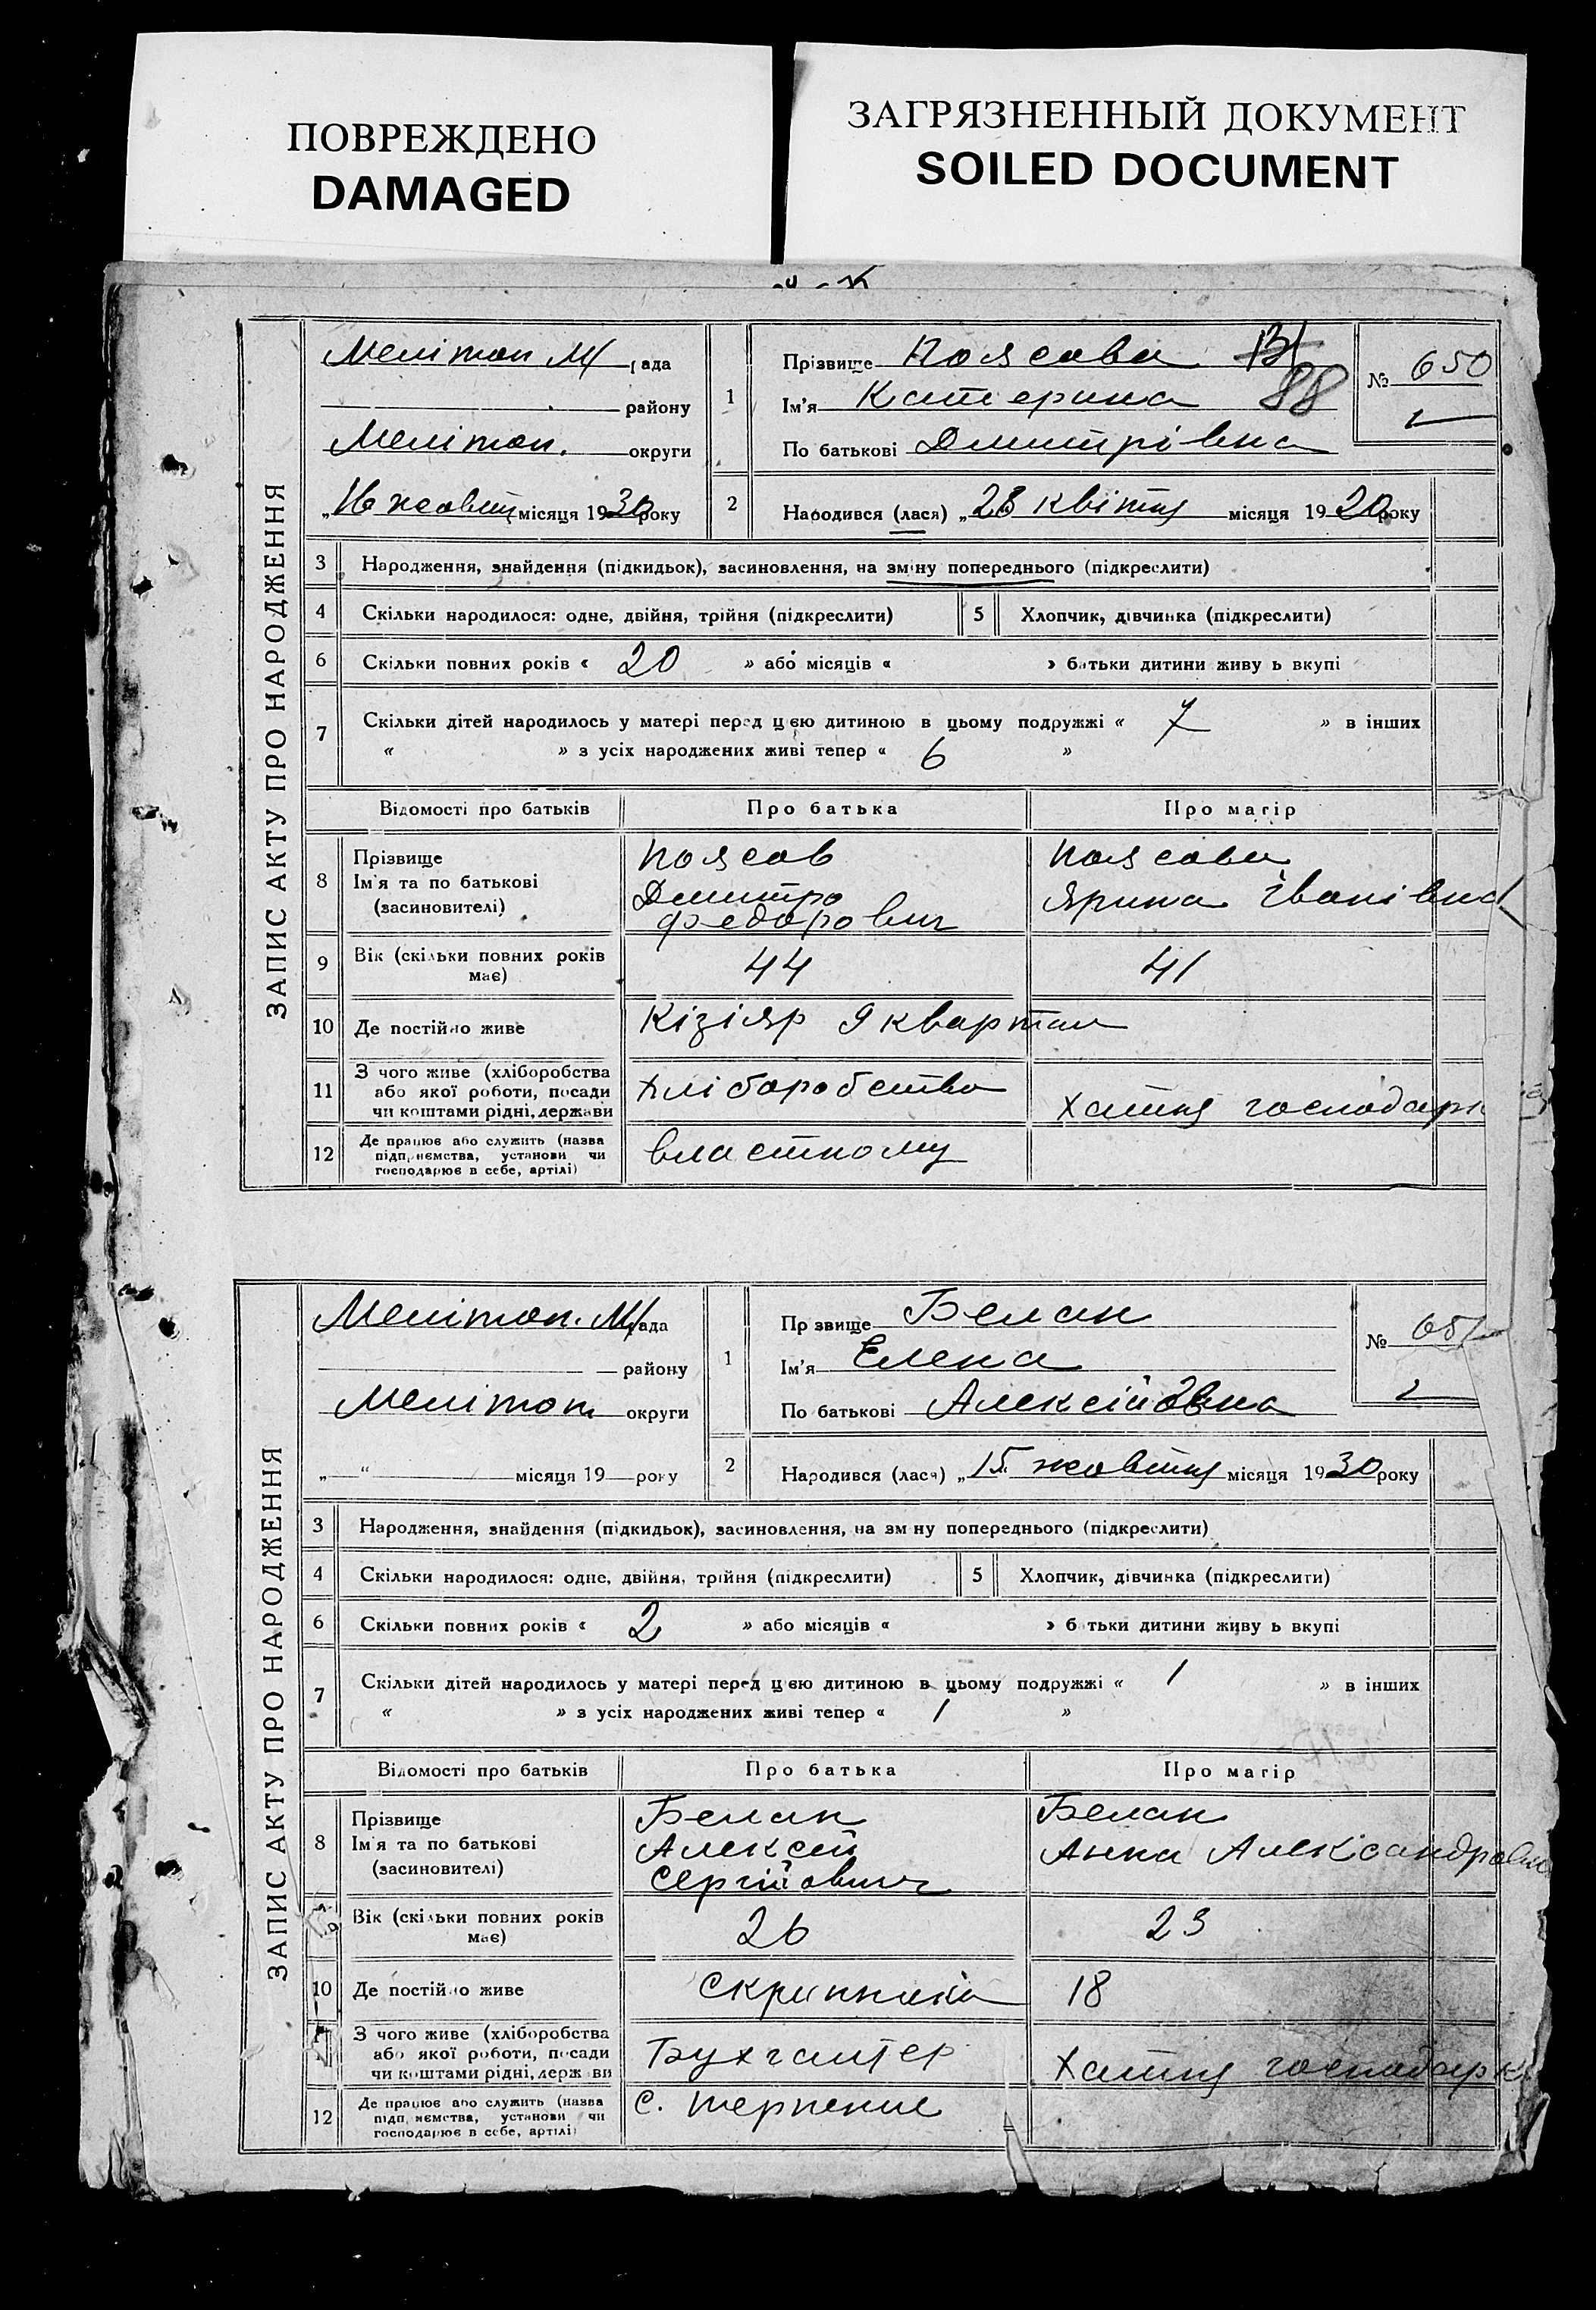 ПОВРЕЖДЕНО
DAMAGED
ЗАГРЯЗНЕННЫЙ ДОКУМЕНТ
SOILED DOCUMENT
ЗАПИС АКТУ ПРО НАРОДЖЕННЯ
Меліточ М/рада
району
Меліто́п. округи
„16 жовтн місяця 1930 року
1
Прізвище Поясова 131
Ім'я Катерина 88
По батькові Дмитрівна
№ 650
2
Народився (лася) „28 квітня місяця 1920 року
3 Народження, знайдення (підкидьок), засиновлення, на зміну попереднього (підкреслити)
4 Скільки народилося: одне, двійня, трійня (підкреслити) 5 Хлопчик, дівчинка (підкреслити)
6 Скільки повних років « 20 » або місяців « » батьки дитини живуть вкупі
7 Скільки дітей народилось у матері перед цією дитиною в цьому подружжі « 7 » в інших
« » з усіх народжених живі тепер « 6 »
Відомості про батьків Про батька Про матір
8 Прізвище Поясов Поясова
Ім'я та по батькові Дмитро Ярина Іванівна
(засиновителі) Федорович
9 Вік (скільки повних років має) 44 41
10 Де постійно живе Кізіяр 9 квартал
11 З чого живе (хліборобства
або якої роботи, посади Хліборобство
чи коштами рідні, держави Хатня господарк
12 Де працює або служить (назва
підприємства, установи чи властному
господарює в себе, артілі)
ЗАПИС АКТУ ПРО НАРОДЖЕННЯ
Меліто́п. М/рада
району
Меліто́п округи
„ “ місяця 19 року
1
Прізвище Белан
Ім'я Елена
По батькові Алексійовна
№ 651
2
Народився (лася) „15“ жовтня місяця 1930 року
3 Народження, знайдення (підкидьок), засиновлення, на зміну попереднього (підкреслити)
4 Скільки народилося: одне, двійня, трійня (підкреслити) 5 Хлопчик, дівчинка (підкреслити)
6 Скільки повних років « 2 » або місяців « » батьки дитини живуть вкупі
7 Скільки дітей народилось у матері перед цією дитиною в цьому подружжі « 1 » в інших
« » з усіх народжених живі тепер « 1 »
Відомості про батьків Про батька Про матір
8 Прізвище Белан Белан
Ім'я та по батькові Алексей Анна Александровн
(засиновителі) Сергійович
9 Вік (скільки повних років має) 26 23
10 Де постійно живе Скрипника 18
11 З чого живе (хліборобства
або якої роботи, посади Бухгалтер
чи коштами рідні, держави Хатня господарк
12 Де працює або служить (назва С. Терпение
підприємства, установи чи
господарює в себе, артілі)